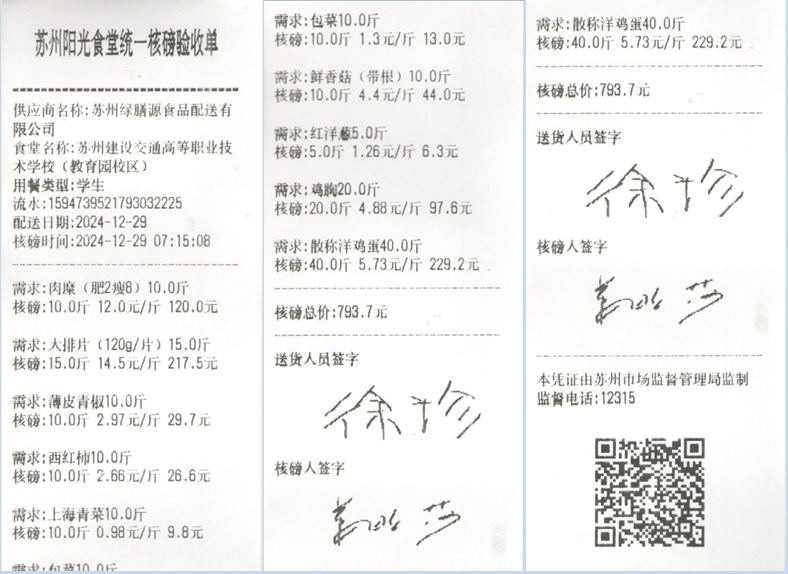 苏州阳光食堂统一核磅验收单
供应商名称:苏州绿膳源食品配送有
限公司
食堂名称:苏州建设交通高等职业技
术学校（教育园校区）
用餐类型:学生
流水:1594739521793032225
配送日期:2024-12-29
核磅时间:2024-12-29 07:15:08
需求:肉糜（肥2瘦8）10.0斤
核磅:10.0斤 12.0元/斤 120.0元
需求:大排片（120g/片）15.0斤
核磅:15.0斤 14.5元/斤 217.5元
需求:薄皮青椒10.0斤
核磅:10.0斤 2.97元/斤 29.7元
需求:西红柿10.0斤
核磅:10.0斤 2.66元/斤 26.6元
需求:上海青菜10.0斤
核磅:10.0斤 0.98元/斤 9.8元
需求:包菜10.0斤
需求:包菜10.0斤
核磅:10.0斤 1.3元/斤 13.0元
需求:鲜香菇（带根）10.0斤
核磅:10.0斤 4.4元/斤 44.0元
需求:红洋葱5.0斤
核磅:5.0斤 1.26元/斤 6.3元
需求:鸡胸20.0斤
核磅:20.0斤 4.88元/斤 97.6元
需求:散称洋鸡蛋40.0斤
核磅:40.0斤 5.73元/斤 229.2元
核磅总价:793.7元
送货人员签字
徐珍
核磅人签字
需求:散称洋鸡蛋40.0斤
核磅:40.0斤 5.73元/斤 229.2元
核磅总价:793.7元
送货人员签字
徐珍
核磅人签字
本凭证由苏州市场监督管理局监制
监督电话:12315